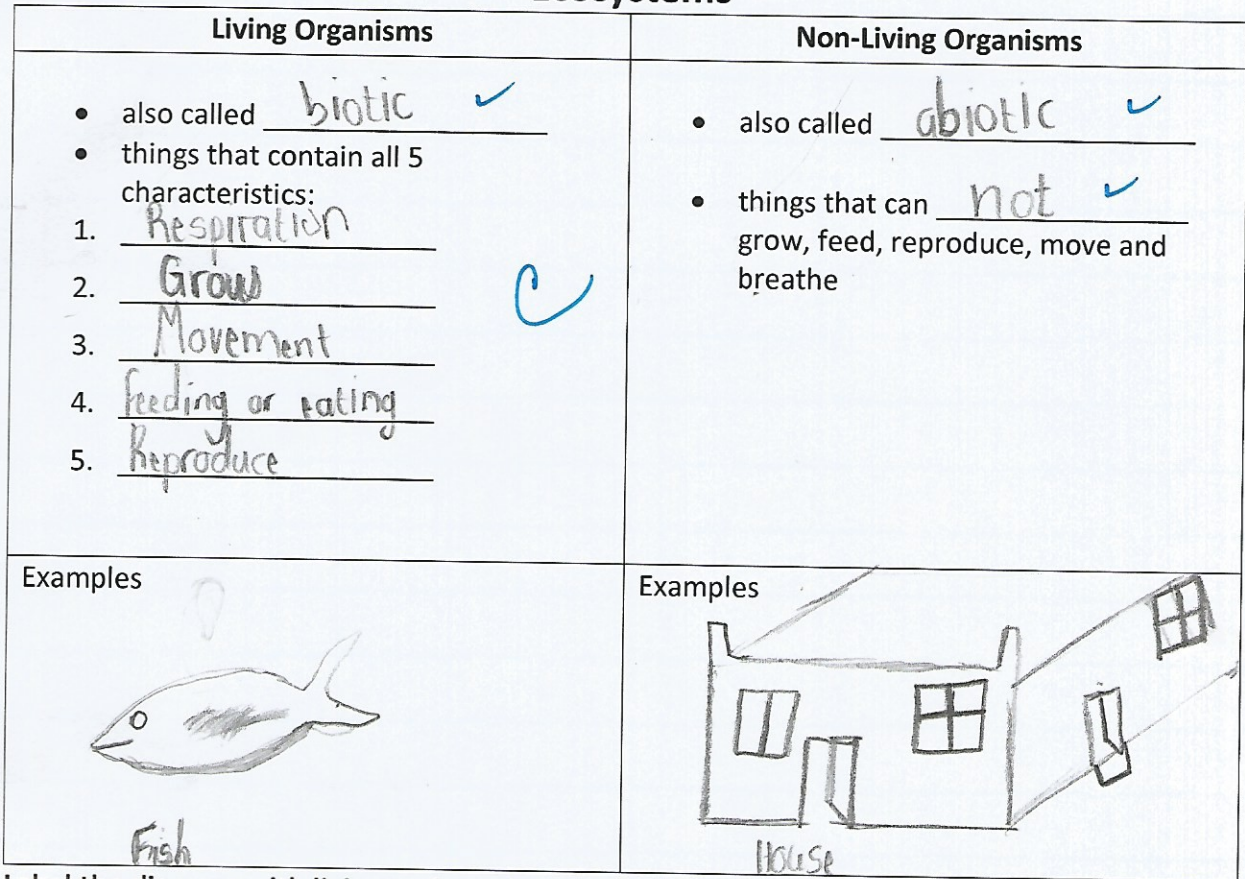 Ecosystems
Living Organisms
• also called biotic
• things that contain all 5
characteristics:
1. Respiration
2. Grow
3. Movement
4. Feeding or eating
5. Reproduce
Non-Living Organisms
• also called abiotic
• things that can not
grow, feed, reproduce, move and
breathe
Examples
Fish
Examples
House